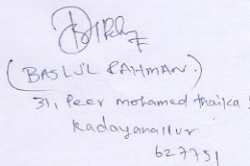 (BASLUL RAHMAN.)
31, Peer mohamed thaika
Kadayanallur
627751